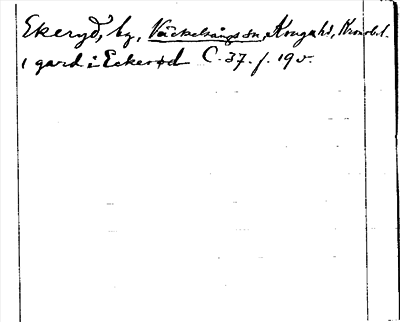 Ekeryd, by, Väckelsångs sn, Konga hd, Kronob. l.
1 gard i Eckerød C. 37. f. 19 v.